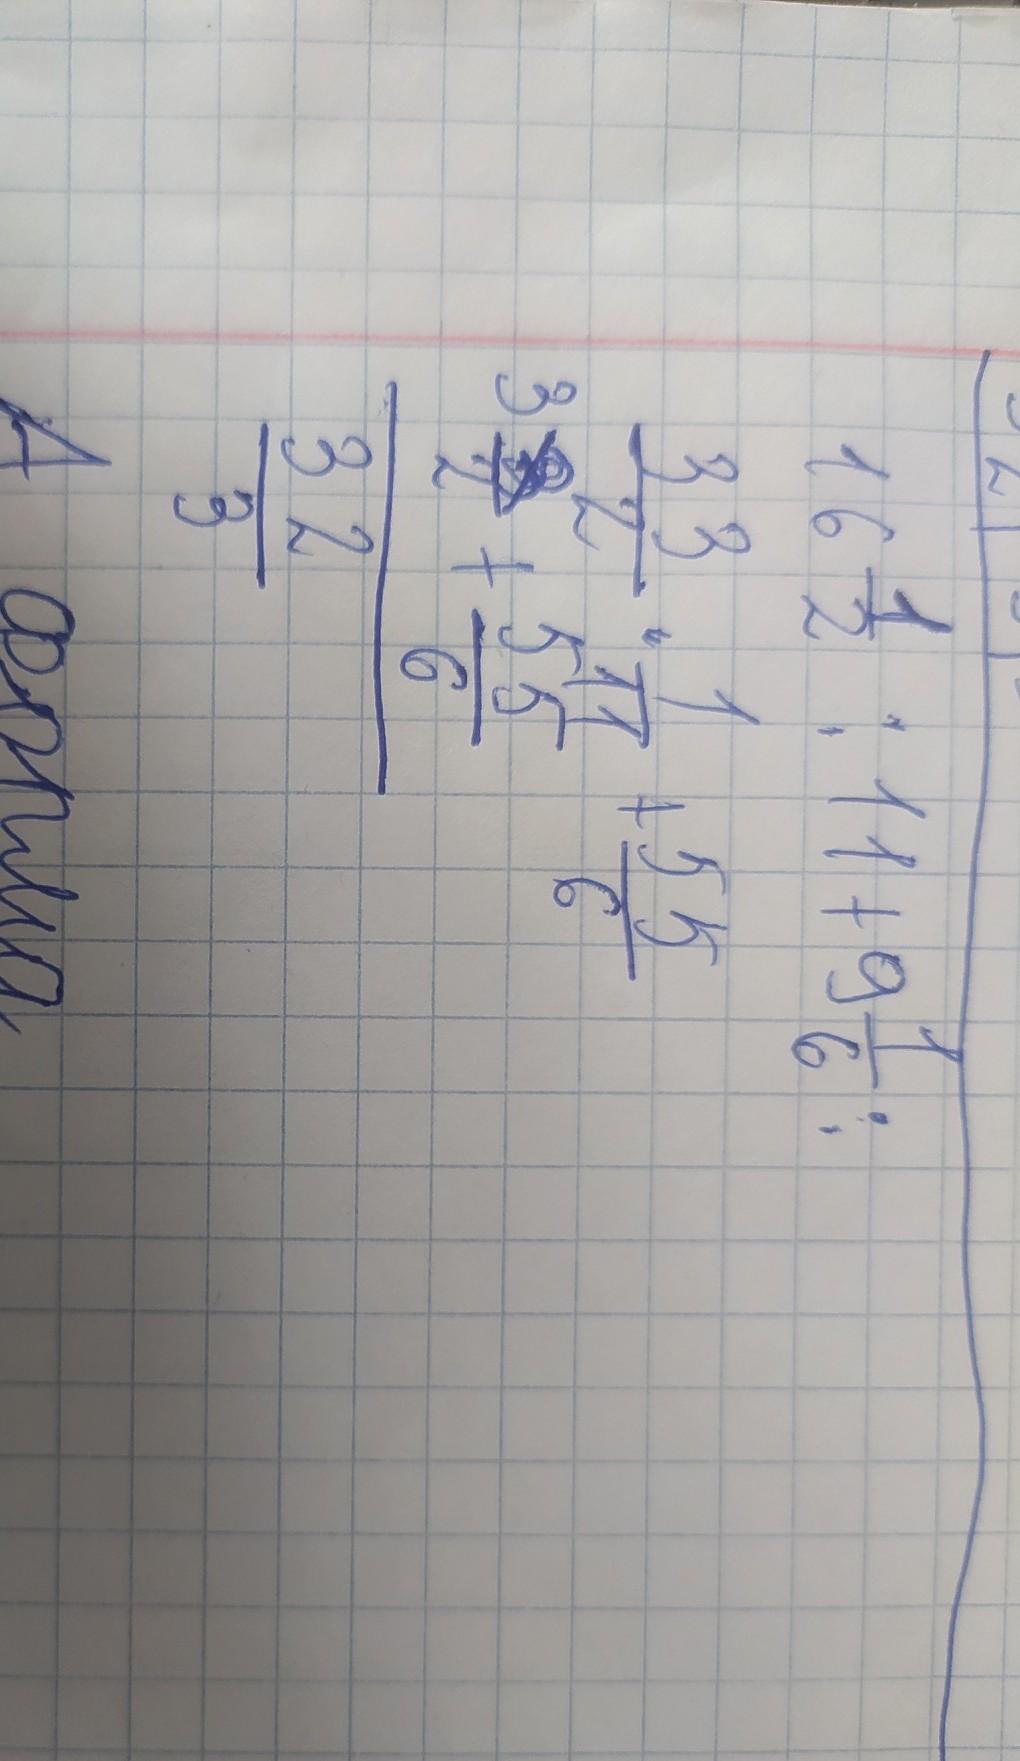 16 1/2 : 11 + 9 1/6 ;
33/2 · 1/11 + 55/6
3/2 + 55/6
32/3
А